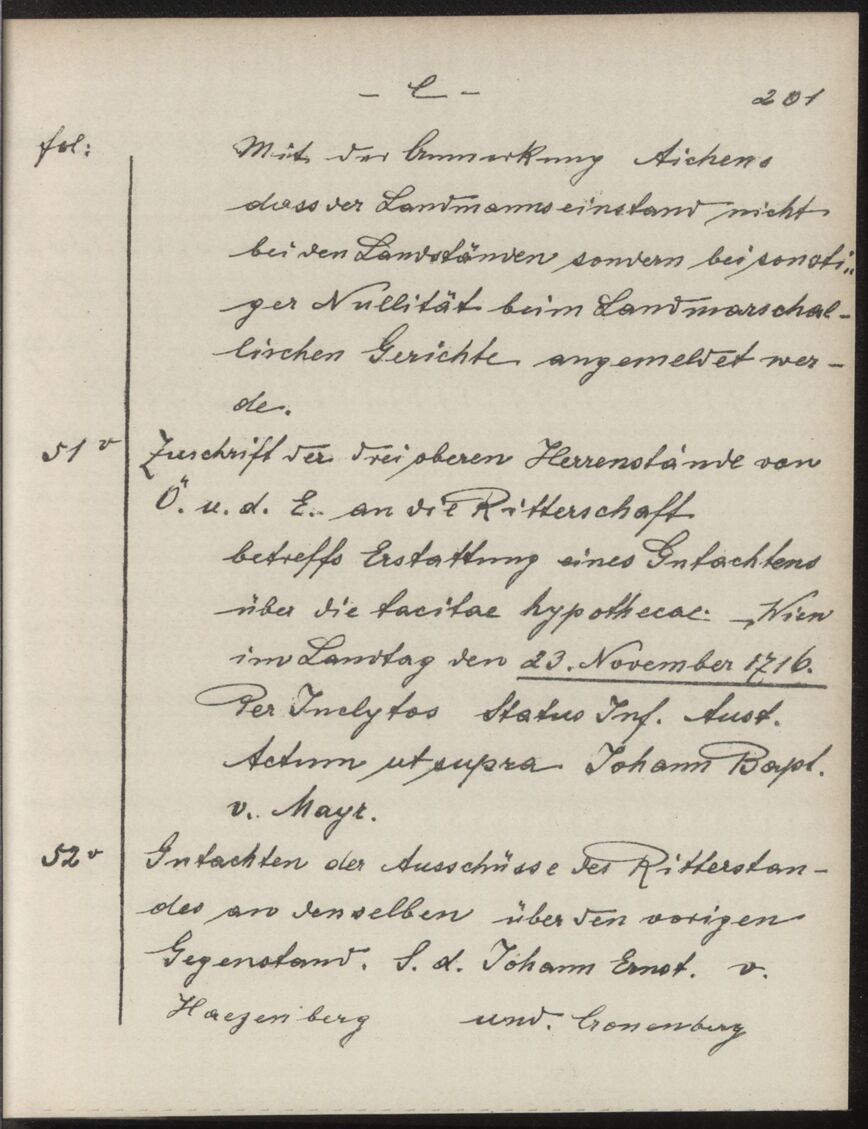 - C - 201
fol: Mit der Anmerkung Aichens
dass der Landmannseinstand nicht
bei den Landständen sondern bei sonsti„
ger Nullität beim Landmarschal-
lischen Gerichte angemeldet wer-
de.
51v Zuschrift der drei oberen Herrenstände von
Ö. u. d. E. an die Ritterschaft
betreffs Erstattung eines Gutachtens
über die tacitae hypothecae: Wien
im Landtag den 23. November 1716.
Per Inclytos Status Inf. Aust.
Actum ut supra Johann Bapt.
v. Mayr.
52v Gutachten der Ausschüsse des Ritterstan-
des an denselben über den vorigen
Gegenstand. S. d. Johann Ernst. v.
Hazenberg und. Cronenberg